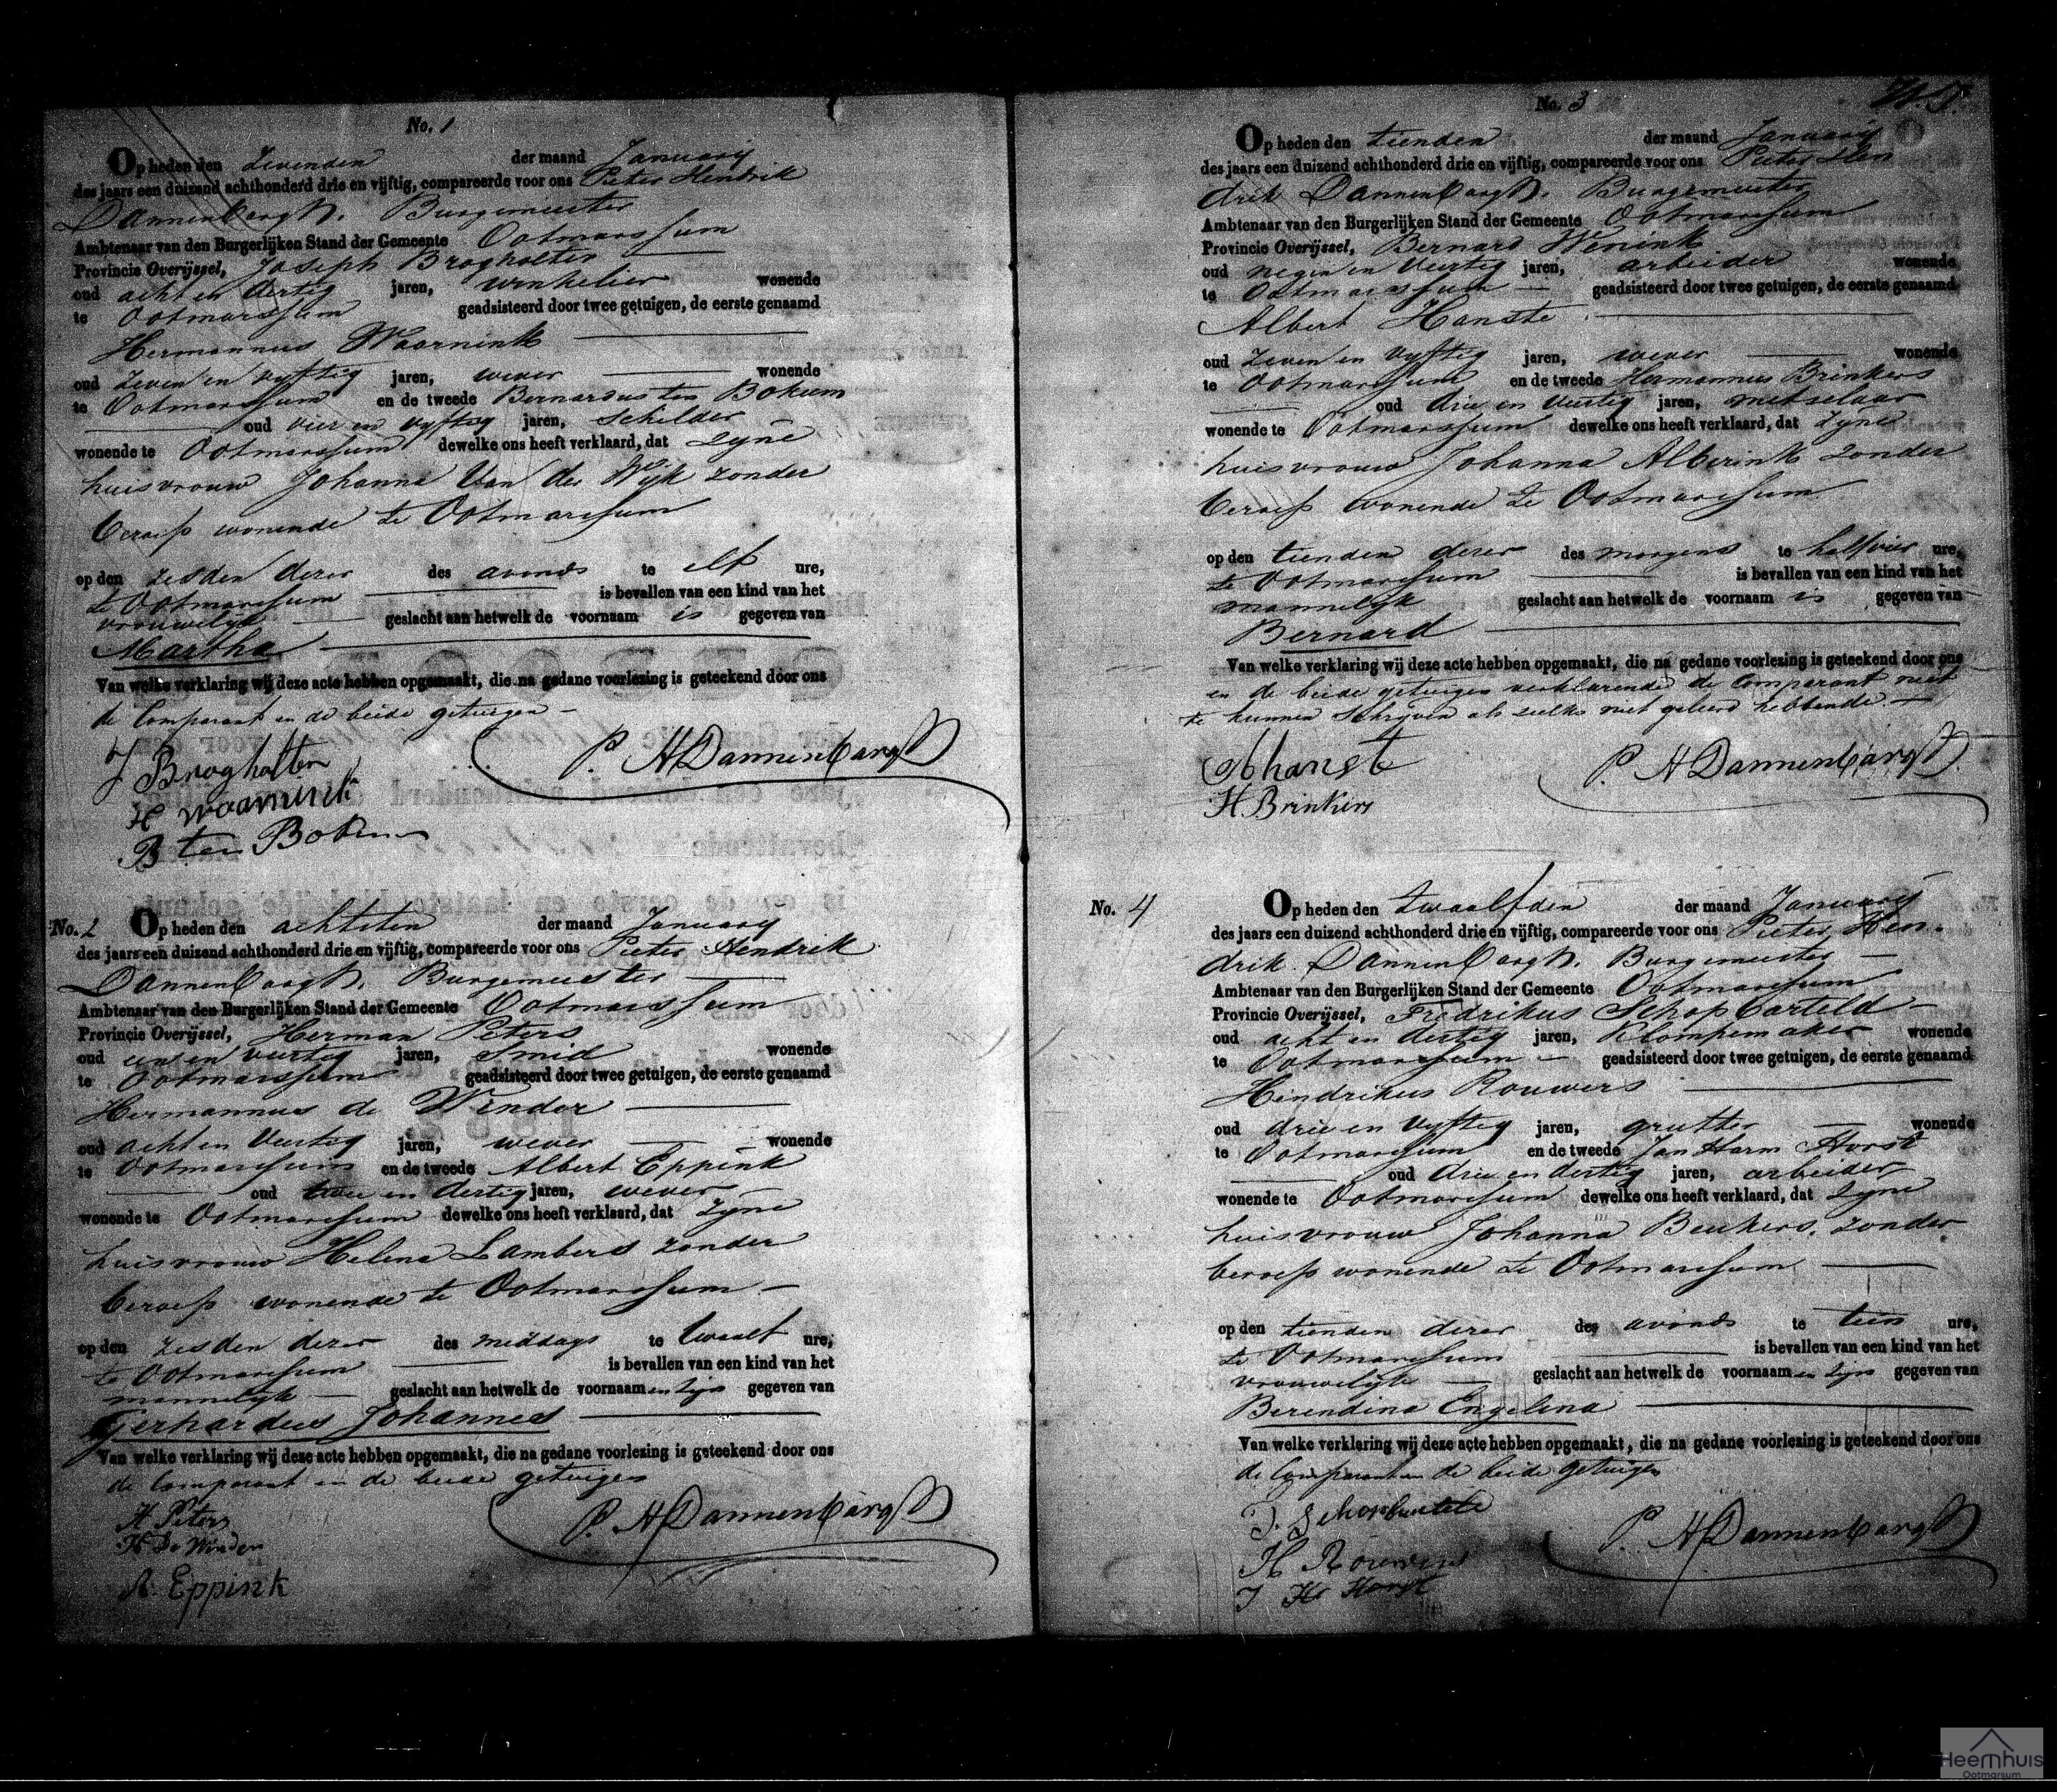 No. 1
Op heden den zevenden der maand Januarij
des jaars een duizend achthonderd drie en vijftig, compareerde voor ons Pieter Hendrik
Dannenbargh. Burgemeester
Ambtenaar van den Burgerlijken Stand der Gemeente Ootmarssum
Provincie Overijssel, Joseph Brogholter
oud acht en dertig jaren, winkelier wonende
te Ootmarssum geadsisteerd door twee getuigen, de eerste genaamd
Hermannus Waarnink
oud zeven en vyftig jaren, wever wonende
te Ootmarssum en de tweede Bernardus ten Bokum
oud vier en vyftig jaren, schilder
wonende te Ootmarssum dewelke ons heeft verklaard, dat zyne
huisvrouw Johanna Van der Wijk zonder
beroep wonende te Ootmarssum
op den zesden dezer des avonds te elf ure,
te Ootmarssum is bevallen van een kind van het
vrouwelyk geslacht aan hetwelk de voornaam is gegeven van
Martha
Van welke verklaring wij deze acte hebben opgemaakt, die na gedane voorlezing is geteekend door ons
de Comparant en de beide getuigen
J Brogholter
P. H Dannenbargh
H Waarnink
B ten Bokum
No. 2
Op heden den achtsten der maand Januarij
des jaars een duizend achthonderd drie en vijftig, compareerde voor ons Pieter Hendrik
Dannenbargh. Burgemeester
Ambtenaar van den Burgerlijken Stand der Gemeente Ootmarssum
Provincie Overijssel, Herman Peters
oud een en veertig jaren, Smid wonende
te Ootmarssum geadsisteerd door twee getuigen, de eerste genaamd
Hermannus de Winder
oud acht en Veertig jaren, wever wonende
te Ootmarssum en de tweede Albert Eppink
oud twee en dertig jaren, wever
wonende te Ootmarssum dewelke ons heeft verklaard, dat zyne
huisvrouw Helena Lambers zonder
beroep wonende te Ootmarssum
op den zesden dezer des middags te twaalf ure,
te Ootmarssum is bevallen van een kind van het
mannelyk geslacht aan hetwelk de voornaam en zijn gegeven van
Gerhardus Johannes
Van welke verklaring wij deze acte hebben opgemaakt, die na gedane voorlezing is geteekend door ons
de Comparant en de beide getuigen
H Peters
P. H Dannenbargh
H De Winder
A. Eppink
No. 3
Op heden den tienden der maand Januarij
des jaars een duizend achthonderd drie en vijftig, compareerde voor ons Pieter Hen
drik Dannenbargh. Burgemeester
Ambtenaar van den Burgerlijken Stand der Gemeente Ootmarssum
Provincie Overijssel, Bernard Wenink
oud negen en Veertig jaren, arbeider wonende
te Ootmarssum geadsisteerd door twee getuigen, de eerste genaamd
Albert Hanste
oud zeven en vyftig jaren, wever wonende
te Ootmarssum en de tweede Hermannus Brinkers
oud drie en Veertig jaren, metselaar
wonende te Ootmarssum dewelke ons heeft verklaard, dat zyne
huisvrouw Johanna Alberink zonder
beroep wonende te Ootmarssum
op den tienden dezer des morgens te half vier ure,
te Ootmarssum is bevallen van een kind van het
mannelyk geslacht aan hetwelk de voornaam is gegeven van
Bernard
Van welke verklaring wij deze acte hebben opgemaakt, die na gedane voorlezing is geteekend door ons
en de beide getuigen verklarende de Comparant niet
te kunnen schrijven als zulks niet geleerd hebbende.
P. H Dannenbargh
H Brinkers
No. 4
Op heden den twaalfden der maand Januarij
des jaars een duizend achthonderd drie en vijftig, compareerde voor ons Pieter Hen-
drik Dannenbargh. Burgemeester
Ambtenaar van den Burgerlijken Stand der Gemeente Ootmarssum
Provincie Overijssel, Fredrikus Schopbarteld
oud acht en dertig jaren, Klompemaker wonende
te Ootmarssum geadsisteerd door twee getuigen, de eerste genaamd
Hendrikus Rouwers
oud drie en vyftig jaren, grutter wonende
te Ootmarssum en de tweede Jan Harm Horst
oud drie en dertig jaren, arbeider
wonende te Ootmarssum dewelke ons heeft verklaard, dat zyne
huisvrouw Johanna Beukers, zonder
beroep wonende te Ootmarssum
op den tienden dezer des avonds te tien ure,
te Ootmarssum is bevallen van een kind van het
vrouwelyk geslacht aan hetwelk de voornaam en zijn gegeven van
Berendina Engelina
Van welke verklaring wij deze acte hebben opgemaakt, die na gedane voorlezing is geteekend door ons
de Comparant en de beide getuigen
P. H Dannenbargh
H Rouwers
J H Horst
Heemhuis
Ootmarsum